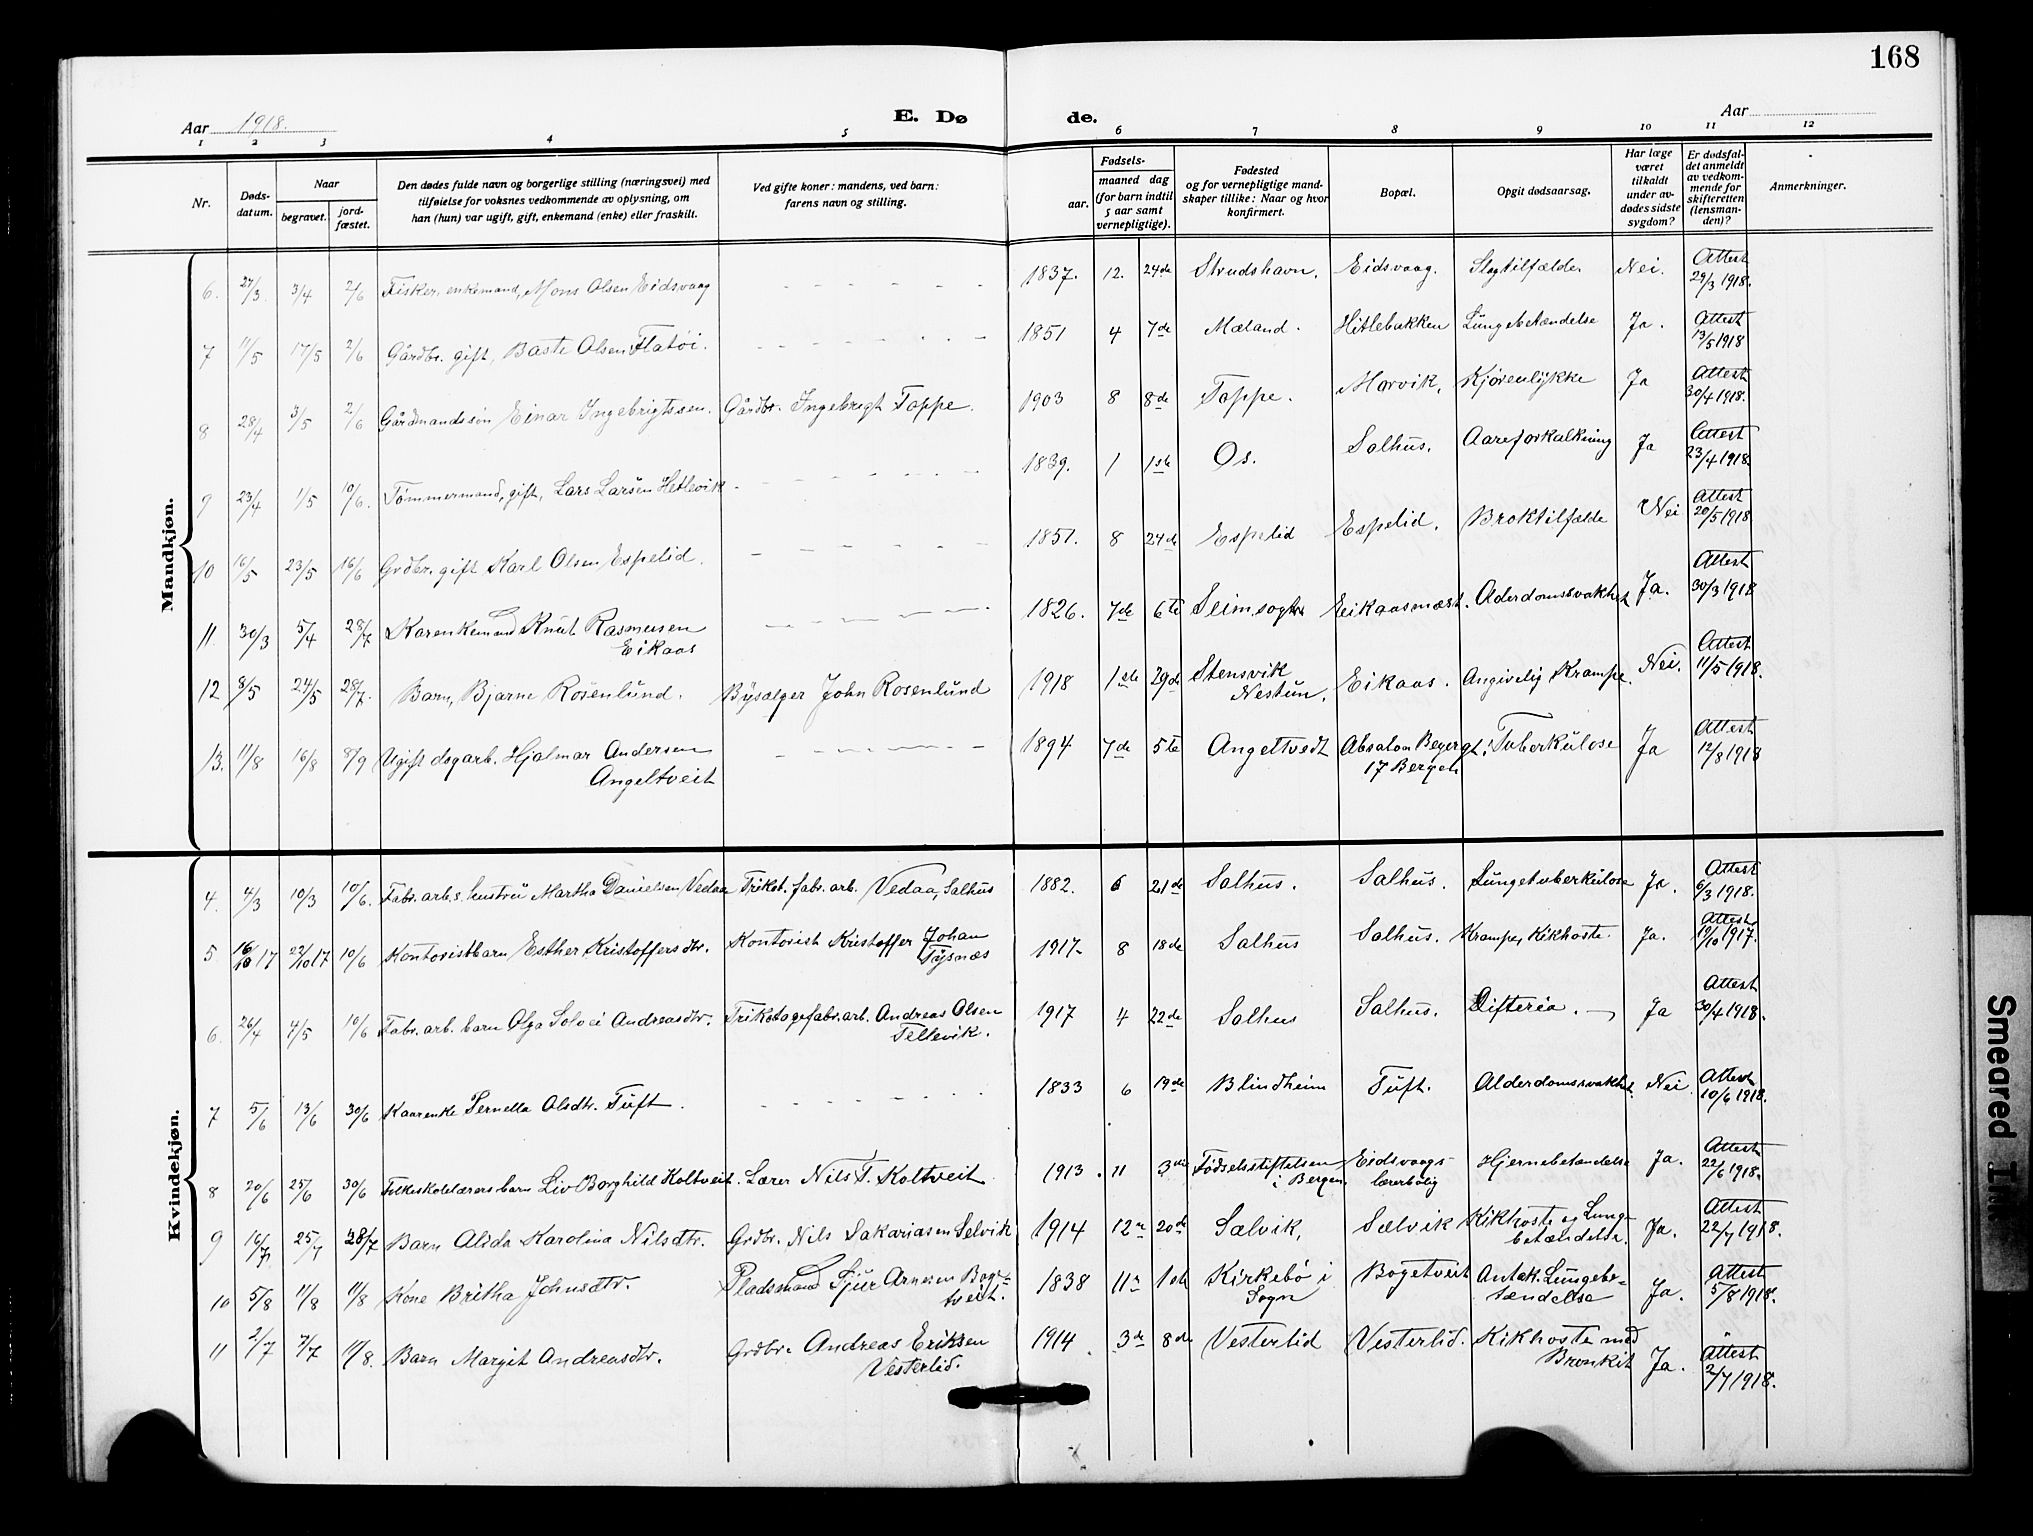 168
Aar 1918.
E. Dø de.
Aar
1 2 3 4 5 6 7 8 9 10 11 12
Nr.
Døds-
datum.
Naar
begravet.
jord-
fæstet.
Den dødes fulde navn og borgerlige stilling (næringsvei) med
tilføielse for voksnes vedkommende av oplysning, om
han (hun) var ugift, gift, enkemand (enke) eller fraskilt.
Ved gifte koner: mandens, ved barn:
farens navn og stilling.
Fødsels-
aar.
maaned dag
(for barn indtil
5 aar samt
vernepligtige).
Fødested
og for vernepligtige mand-
skaper tillike: Naar og hvor
konfirmert.
Bopæl.
Opgit dødsaarsag.
Har læge
været
tilkaldt
under av-
dødes sidste
sygdom?
Er dødsfal-
det anmeldt
av vedkom-
mende for
skifteretten
(lensman-
den)?
Anmerkninger.
Mandkjøn.
6. 27/3 3/4 2/6 Fisker, enkemand, Mons Olsen Eidsvaag - - - - - - 1837. 12. 24de Strudshavn. Eidsvaag. Slagtilfælde. Nei. Attest
29/3 1918.
7 11/5 17/5 2/6 Gårdbr. gift, Baste Olsen Flatøi. - - - - - - 1851 4 7de Mæland. Hitlebakken Lungebetændelse Ja. Attest
13/5 1918
8 28/4 3/5 2/6 Gårdmandssøn Einar Ingebrigtssen. Gårdbr. Ingebrigt Toppe. 1903 8 8de Toppe. Morvik, Kjørenlykke Ja Attest
30/4 1918.
9 23/4 1/5 10/6. Tømmermand, gift, Lars Larsen Hetlevik - - - - - - 1839. 1 1ste Os. Salhus. Aareforkalkning Ja Attest
23/4 1918.
10 16/5 23/5 16/6 Grdbr. gift Karl Olsen Espelid. - - - - - - 1851. 8 24de Espelid Espelid. Broktilfælde Nei Attest
20/5 1918
11 30/3 5/4 28/7 Karenkemand Knut Rasmusen
Eikaas - - - - - - 1826. 7de 6te Seimsogn Eikaasmært. Alderdomssvakhet Ja. Attest
30/3 1918
12 8/5 24/5 28/7. Barn, Bjarne Rosenlund. Bysælger John Rosenlund 1918 1ste 29de Stensvik
Nestun, Eikaas. Angivelig Krampe. Nei. Attest
11/5 1918.
13. 11/8 16/8 8/9 Ugift dagarb. Hjalmar Andersen
Angeltveit - - - - - - 1894 7de 5te Angeltvedt Absalon
17 Bergen Tuberkulose Ja Attest
12/8 1918
Kvindekjøn.
4. 4/3 10/3 10/6. Fabr. arb.s. hustru Martha Danielsen Vedaa Trikot. fabr. arb. Vedaa, Salhus 1882. 6 21de Salhus. Salhus. Lungetuberkulose Ja. Attest
6/3 1918.
5 16/10 17 22/10 17 10/6 Kontoristbarn Esther Kristoffersdtr. Kontorist Kristoffer Johan
Tysnæs 1917- 8 18de Salhus Salhus. Krampe, Kikhoste. Ja. Attest
19/10 1917.
6. 26/4 4/5 10/6 Fabr. arb. barn Olga Solvei Andreasdtr. Trikotagefabr. arb. Andreas Olsen
Tellevik. 1917 4 22de Salhus Salhus. Difteria. Ja Attest
30/4 1918.
7 5/6 13/6 30/6 Kaarenke Pernella Olsdtr. Tuft. - - - - - - 1833 6 19de Blindheim Tuft. Alderdomssvakhet. Nei Attest
10/6 1918.
8 20/6 25/6 30/6 Folkeskolelærers barn Liv Borghild Koltveit. Lærer Nils T. Koltveit 1913. 11 3die Fødselsstiftelsen
i Bergen Eidsvaags
lærerbolig Hjernebetændelse Ja. Attest
22/6 1918.
9 16/7 25/7 28/7 Barn Alida Karolina Nilsdtr. Grdbr. Nils Sakariasen Selvik 1914 12te 20de Sælvik, Sælvik Kikhoste og Lung-
betændelse. Ja. Attest
22/7 1918.
10 5/8 11/8 11/8 Kone Britha Johnsdtr. Pladsmand Sjur Arnesen Boge-
tveit. 1838 11te 1ste Kirkebø i
Sogn Bogetveit Antak. Lungebe-
tændelse Ja. Attest
5/8 1918.
11 2/7 7/7 11/8. Barn Margit Andreasdtr. Grdbr. Andreas Eriksen
Vesterlid. 1914. 3de 8de Vesterlid Vesterlid. Kikhoste med
Bronkit Ja. Attest
2/7 1918.
Smeared Ink